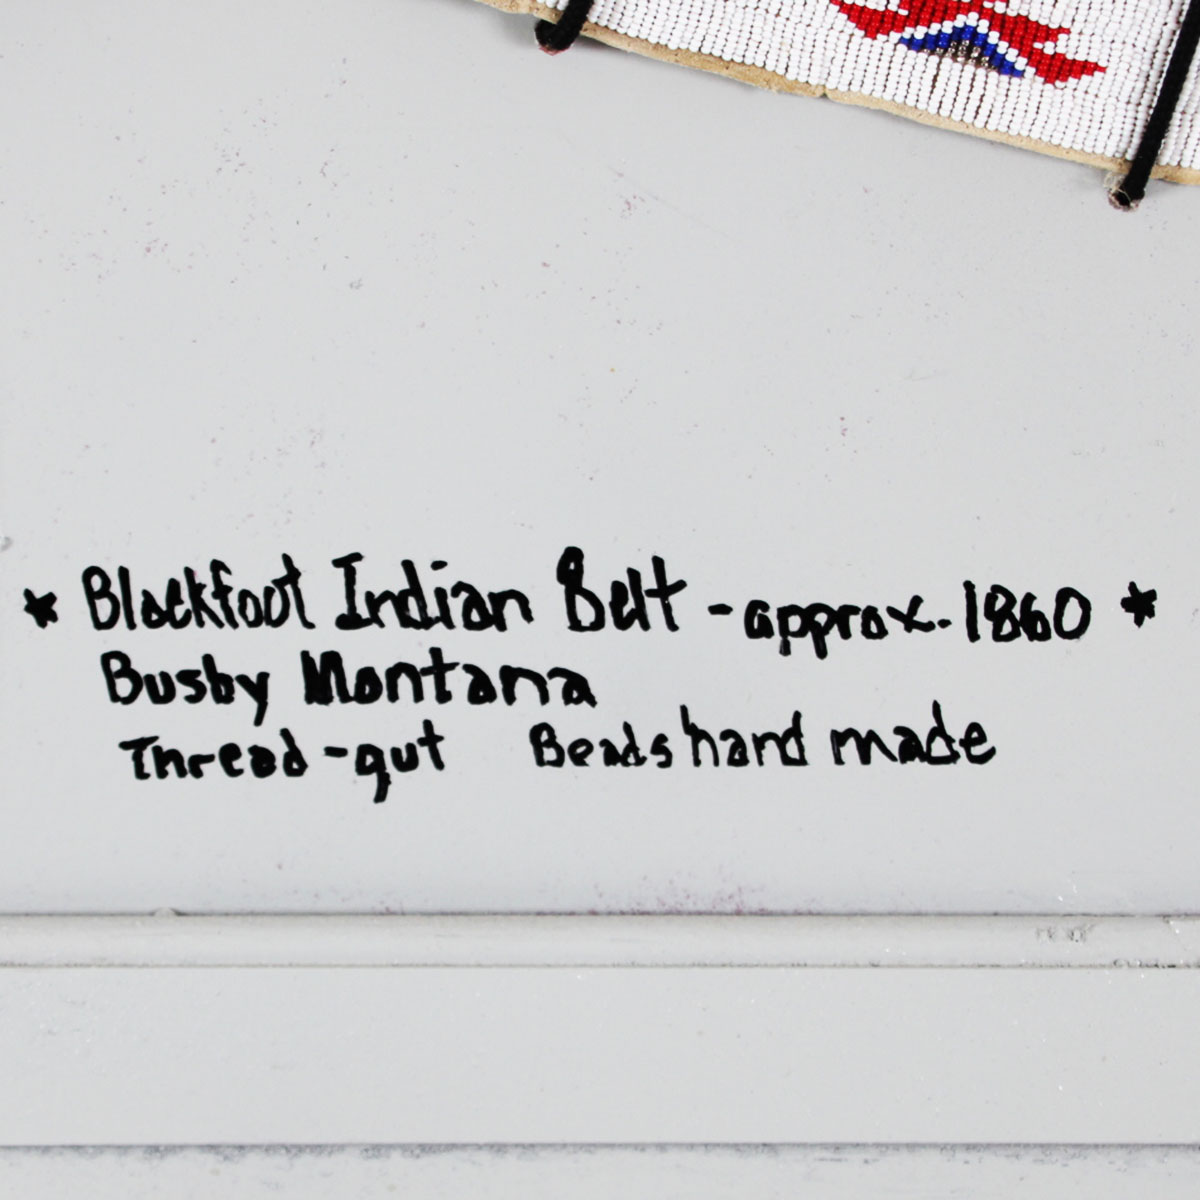 * Blackfoot Indian Belt - approx. 1860 *
Busby Montana
Thread - gut Beads hand made